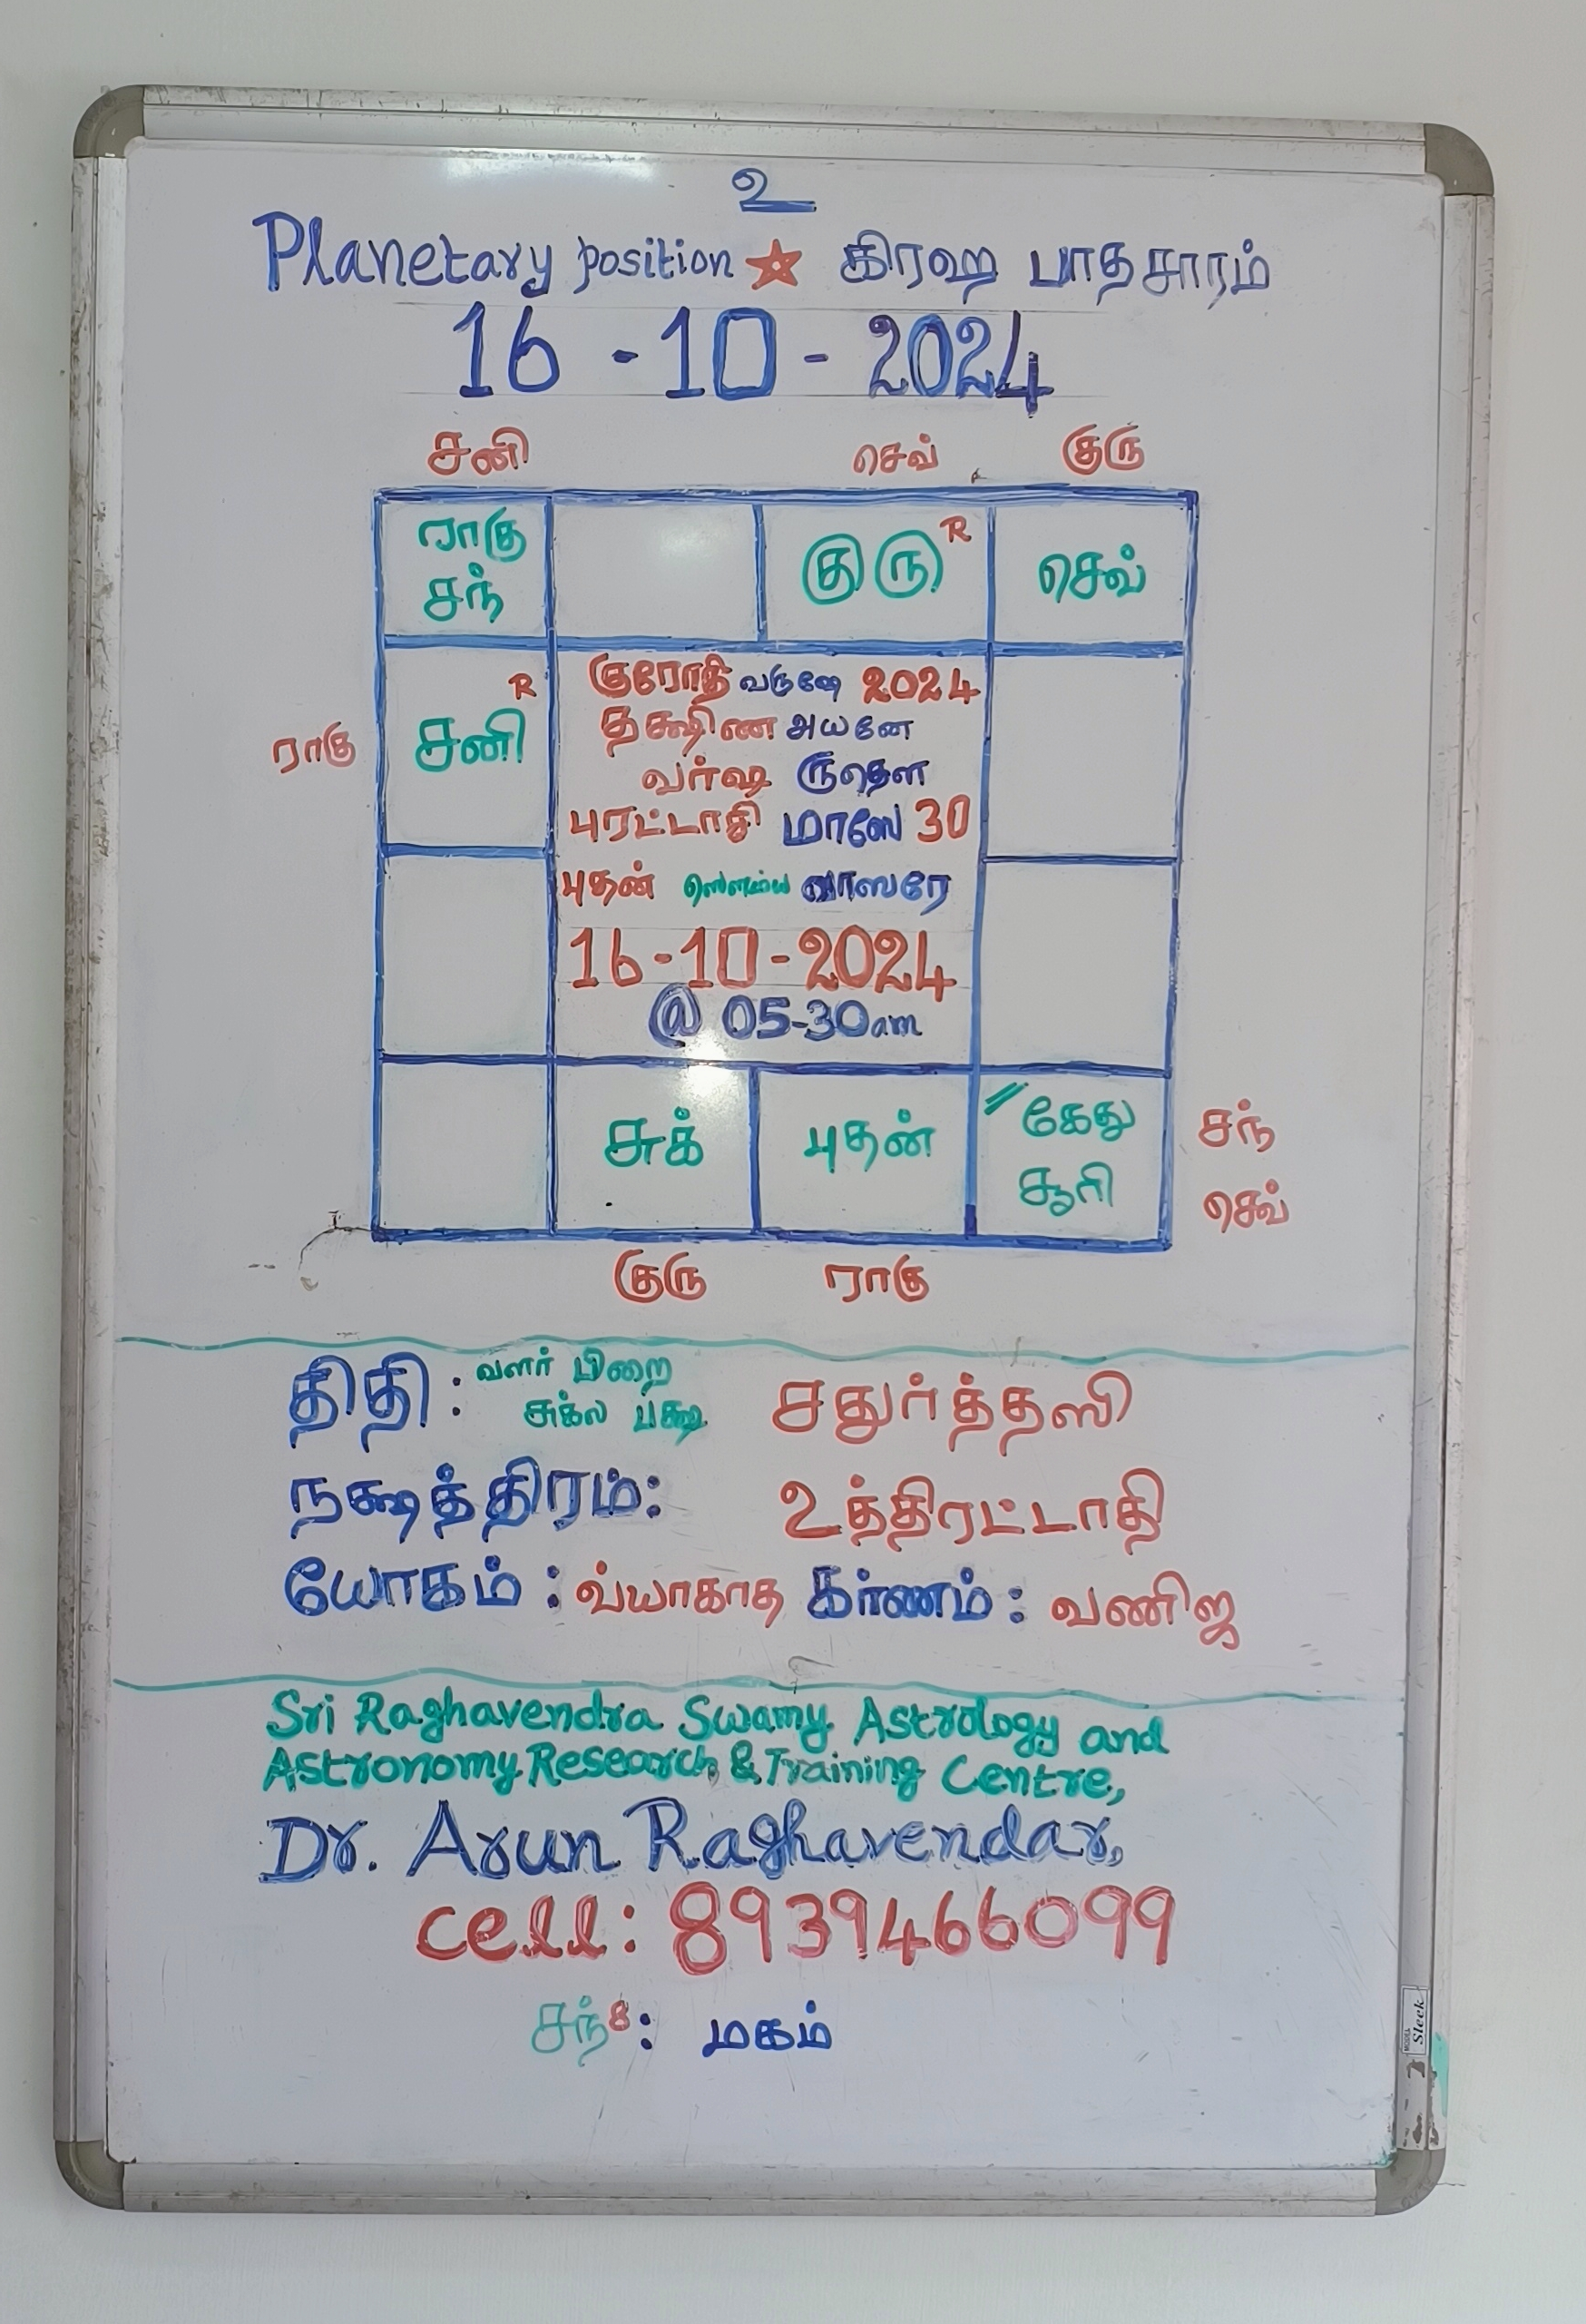 உ
Planetary position ☆ கிரஹ பாதசாரம்
16 - 10 - 2024
சனி செவ் குரு
ராகு சந்
குரு R
செவ்
ராகு
சனி R
குரோதி வருஷே 2024
தக்ஷிண அயனே
வர்ஷ ருதௌ
புரட்டாசி மாஸே 30
புதன் ஸௌம்ய வாஸரே
16-10-2024
@ 05-30am
சுக்
புதன்
கேது
சூரி
சந்
செவ்
குரு ராகு
திதி : வளர் பிறை
சுக்ல பக்ஷ சதுர்த்தஸி
நக்ஷத்திரம்: உத்திரட்டாதி
யோகம் : வ்யாகாத கர்ணம் : வணிஜ
Sri Raghavendra Swamy Astrology and
Astronomy Research & Training Centre,
Dr. Arun Raghavendar,
cell: 8939466099
சந்8: மகம்
MODEL Sleek